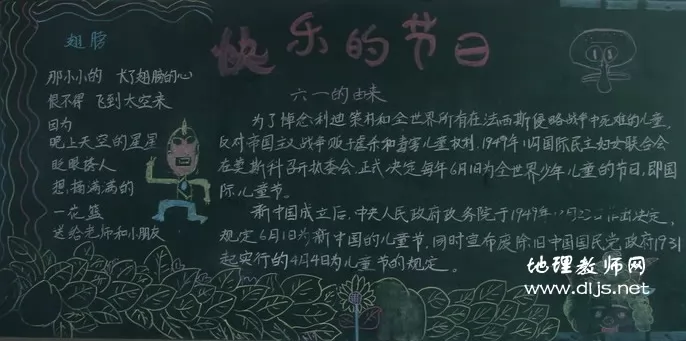 快乐的节日
翅膀
那小小的 长了翅膀的心
恨不得 飞到太空来
因为
晚上天空的星星
眨眼惹人
想摘满满的
一花篮
送给老师和小朋友
六一的由来
为了悼念利迪策村和全世界所有在法西斯侵略战争中死难的儿童,
反对帝国主义战争贩子虐杀和毒害儿童权利,1949年11月国际民主妇女联合会
在莫斯科召开执委会,正式决定每年6月1日为全世界少年儿童的节日,即国
际儿童节。
新中国成立后,中央人民政府政务院于1949年12月23日作出决定,
规定6月1日为新中国的儿童节,同时宣布废除旧中国国民党政府1931
起实行的4月4日为儿童节的规定。
地理教师网
www.dljs.net